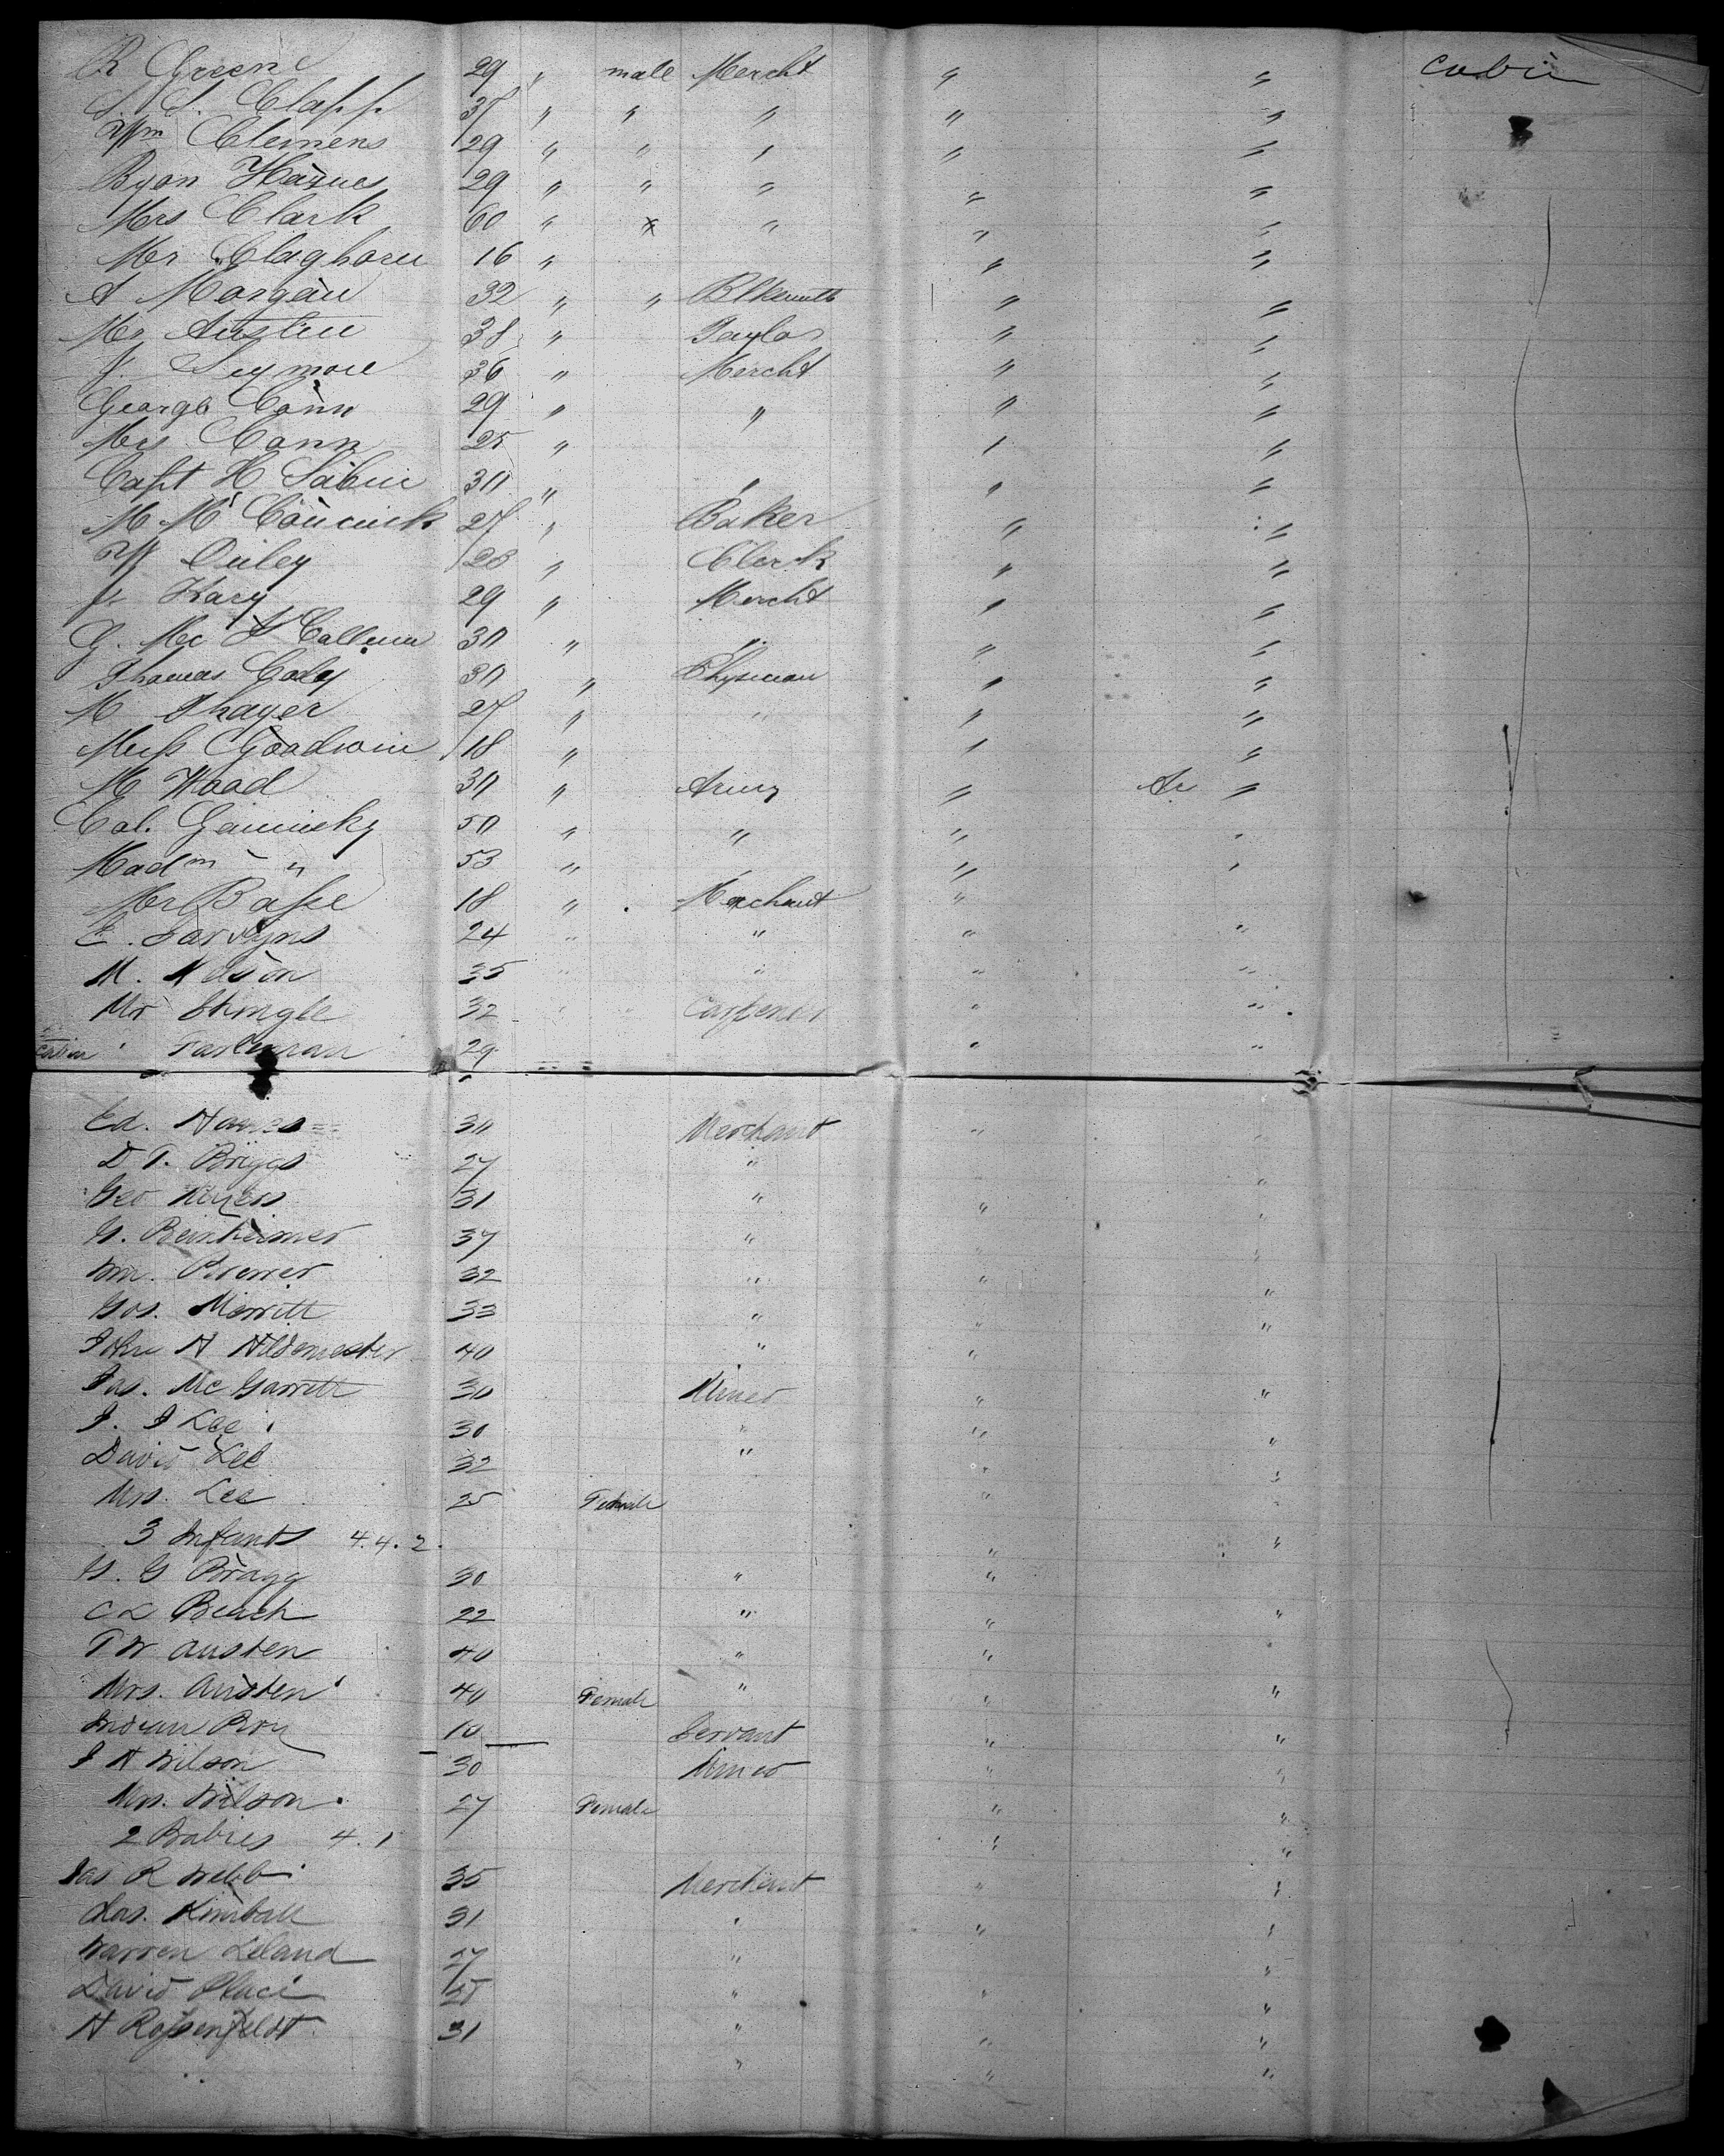 R Greene 29 " male Mercht " " Cabin
S. S. Clapp 37 " " " " "
Wm Clemens 29 " " " " "
Ryan 29 " " " " "
Mrs Clark 60 " x " " "
Mr Claghorn 16 " " "
A Morgan 32 " " Blksmith " "
Mr Austin 38 " Taylor " "
J Seymore 36 " Mercht " "
George Conn 29 " " " "
Mrs Conn 25 " " "
Capt H Sabin 30 " " " "
M Mc 27 " Baker " "
W 28 " Clerk " "
J. Kary 29 " Mercht " "
G. Mc Callum 30 " " " "
Thomas Cody 30 " Physician " "
M Thayer 27 " " " "
Miss Goodwin 18 " " "
M Wood 30 " Army " "
Col. 50 " " " "
Madm " 53 " " "
Mr Basse 18 " Merchant "
E. 24 " " " "
M. Nelson 35 " " " "
Mr Shingle 32 " Carpenter " "
Cabin " 29 " "
Ed. 30 Merchant "
D T. Briggs 27 " "
Geo Myers 31 " "
37 "
Wm. 32 " "
Jos. Merritt 33 " " "
John H 40 " "
Jas. Mc Garrett 30 Miner " "
J. J Lee 30 " " "
David Lee 32 " " "
Mrs. Lee 25 Female "
3 Infants 4. 4. 2. " "
G Bragg 30 " "
C L Beach 22 " " "
T W Austen 40 " "
Mrs. Austen 40 Female " " "
Indian Boy 10 Servant " "
J H Wilson 30 Miner " "
Mrs. Wilson 27 Female " "
2 Babies 4. 1 " "
Jas R Webb 35 Merchant " "
Chas. Kimball 31 " " "
Warren Leland 27 " "
David Place 25 " " "
H Rossenfeldt 31 " " "
" " "